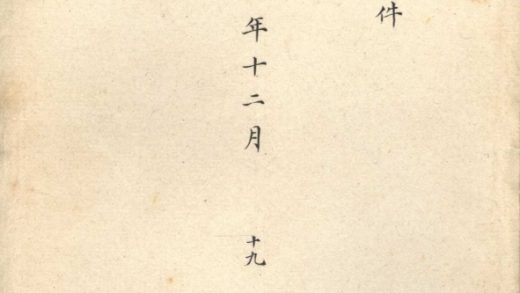 件
年十二月 十九